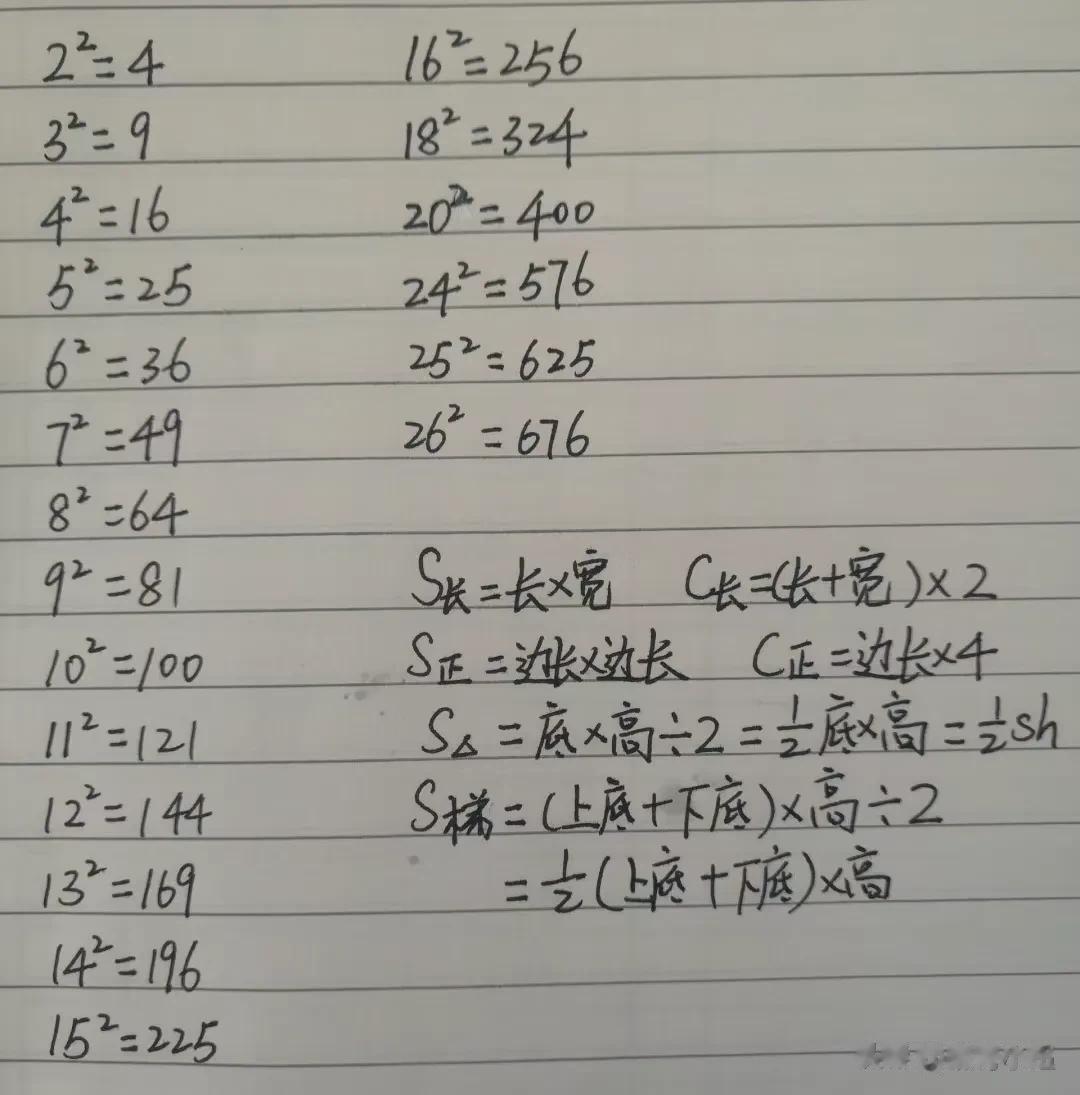 2²=4
3²=9
4²=16
5²=25
6²=36
7²=49
8²=64
9²=81
10²=100
11²=121
12²=144
13²=169
14²=196
15²=225
16²=256
18²=324
20²=400
24²=576
25²=625
26²=676
S长=长×宽 C长=(长+宽)×2
S正=边长×边长 C正=边长×4
S△=底×高÷2=½底×高=½sh
S梯=(上底+下底)×高÷2
=½(上底+下底)×高